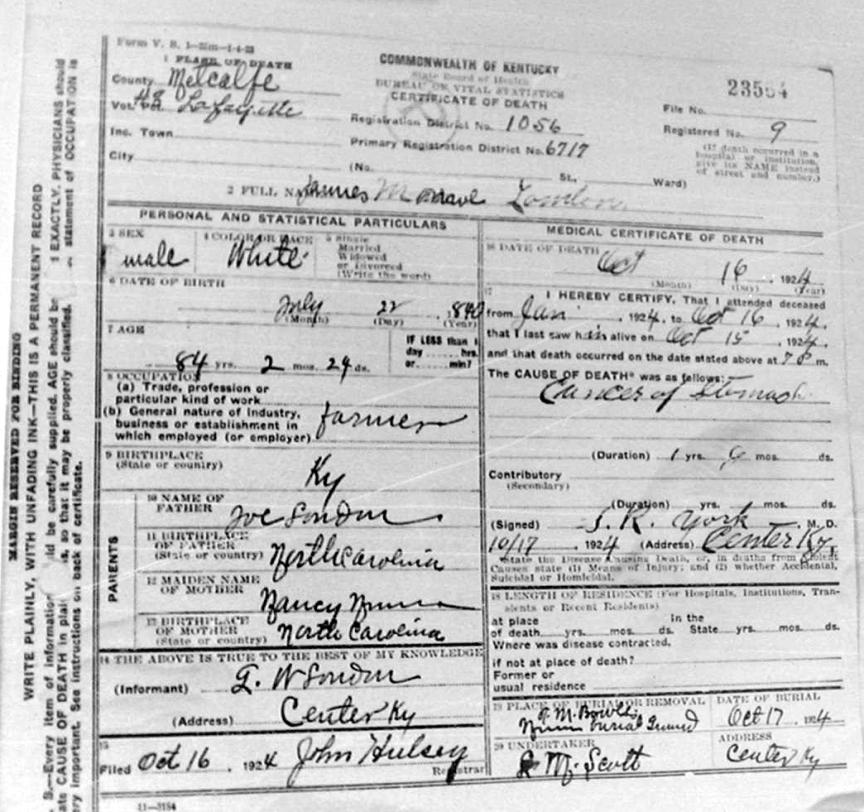 Form V. S. 1-35m-1-4-23
1 PLACE OF DEATH
County Metcalfe
Vot. Pct. 48 Lafayette
Inc. Town
City
COMMONWEALTH OF KENTUCKY
State Board of Health
BUREAU OF VITAL STATISTICS
CERTIFICATE OF DEATH
Registration District No. 1056
Primary Registration District No. 6717
(No. St., Ward)
File No. 23554
Registered No. 9
(If death occurred in a hospital or institution, give its NAME instead of street and number.)
2 FULL NAME James London
PERSONAL AND STATISTICAL PARTICULARS
3 SEX male
4 COLOR OR RACE White
5 Single
Married
Widowed
or Divorced
(Write the word)
6 DATE OF BIRTH
July 22, 1840
(Month) (Day) (Year)
7 AGE
84 yrs. 2 mos. 24 ds.
IF LESS than 1
day hrs.
or min?
8 OCCUPATION
(a) Trade, profession or
particular kind of work
(b) General nature of industry,
business or establishment in
which employed (or employer) farmer
9 BIRTHPLACE
(State or country)
Ky
PARENTS
10 NAME OF
FATHER Joe London
11 BIRTHPLACE
OF FATHER
(State or country) North Carolina
12 MAIDEN NAME
OF MOTHER Nancy Nunn
13 BIRTHPLACE
OF MOTHER
(State or country) North Carolina
14 THE ABOVE IS TRUE TO THE BEST OF MY KNOWLEDGE
(Informant) G. W London
(Address) Center Ky
15
Filed Oct 16, 1924 John Hulsey
Registrar
11-3184
MEDICAL CERTIFICATE OF DEATH
16 DATE OF DEATH
Oct 16 1924
(Month) (Day) (Year)
17 I HEREBY CERTIFY, That I attended deceased
from Jan, 1924, to Oct 16, 1924,
that I last saw him alive on Oct 15, 1924,
and that death occurred on the date stated above at 7 P m.
The CAUSE OF DEATH* was as follows:
Cancer of Stomach
(Duration) 1 yrs. mos. ds.
Contributory
(Secondary)
(Duration) yrs. mos. ds.
(Signed) S. R. York M. D.
10/17 1924 (Address) Center Ky,
*State the Disease Causing Death, or, in deaths from Violent
Causes state (1) Means of Injury; and (2) whether Accidental,
Suicidal or Homicidal.
18 LENGTH OF RESIDENCE (For Hospitals, Institutions, Tran-
sients or Recent Residents)
at place In the
of death yrs. mos. ds. State yrs. mos. ds.
Where was disease contracted,
if not at place of death?
Former or
usual residence
19 PLACE OF BURIAL OR REMOVAL
Nunn Burial Ground
DATE OF BURIAL
Oct 17, 1924
20 UNDERTAKER
M. Scott
ADDRESS
Center Ky
MARGIN RESERVED FOR BINDING
WRITE PLAINLY, WITH UNFADING INK—THIS IS A PERMANENT RECORD